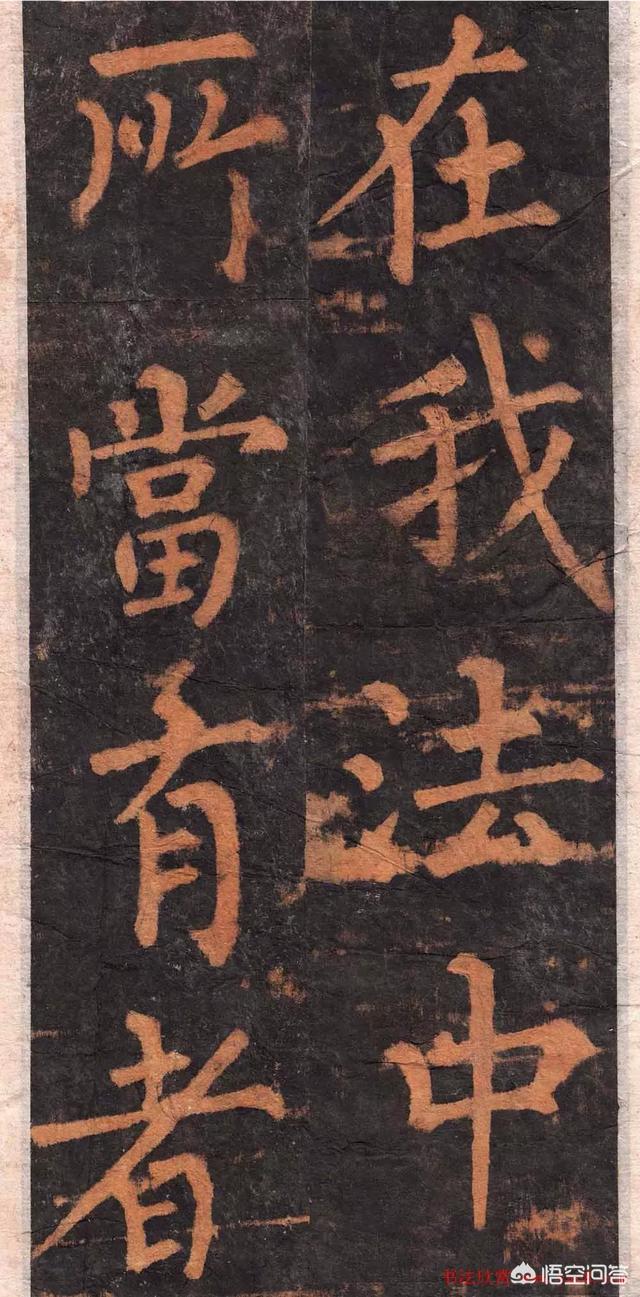 在我法中
所當有者
书法欣赏
悟空问答